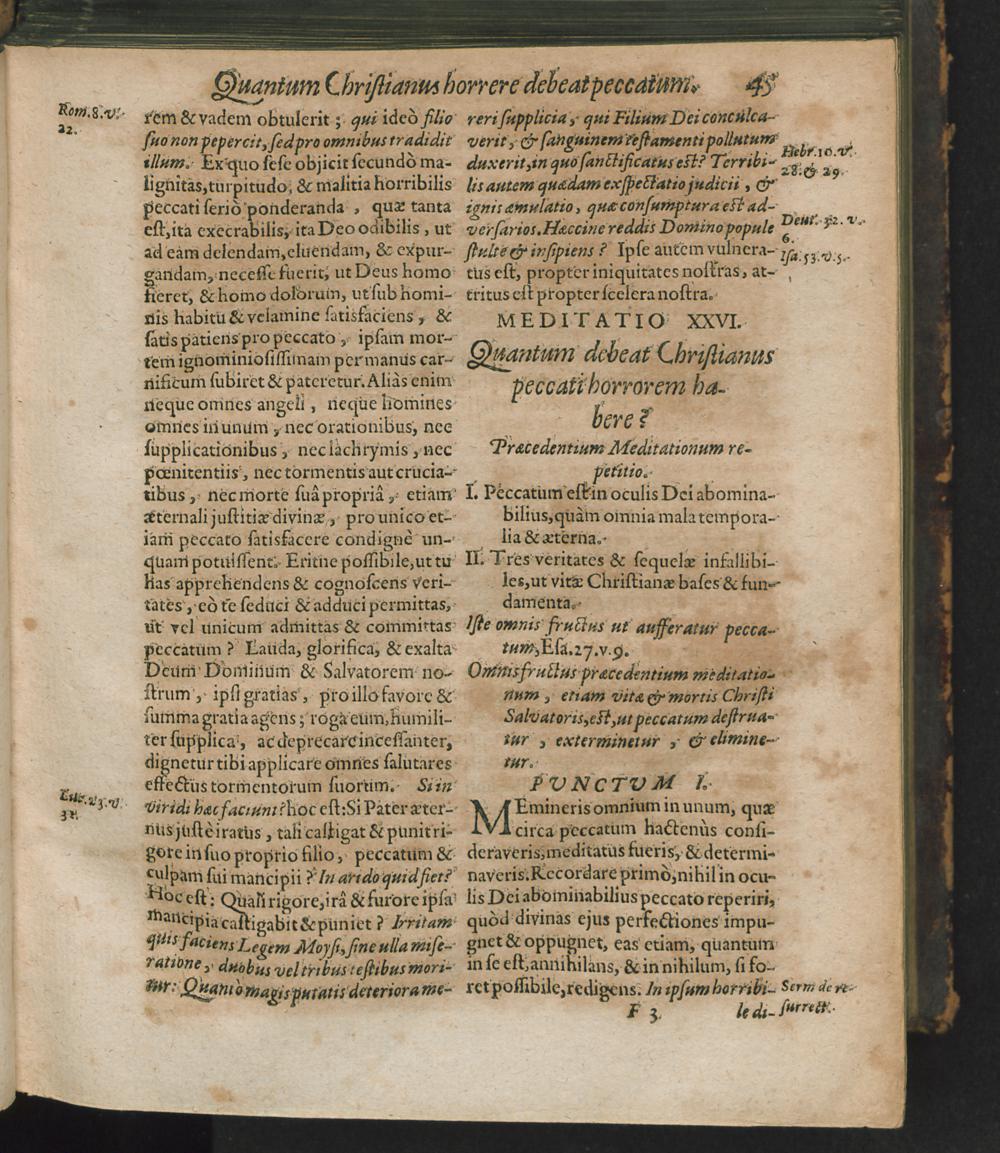 Quantum Christianus horrere debeat peccatum. 45
Rom. 8. v.
22.
rem & vadem obtulerit ; qui ideò filio
suo non pepercit, sed pro omnibus tradidit
illum. Ex quo sese objicit secundò ma-
lignitas, turpitudo, & malitia horribilis
peccati seriò ponderanda , quæ tanta
est, ita execrabilis, ita Deo odibilis , ut
ad eam delendam, eluendam, & expur-
gandam, necesse fuerit, ut Deus homo
fieret, & homo dolorum, ut sub homi-
nis habitu & velamine satisfaciens , &
satis patiens pro peccato , ipsam mor-
tem ignominiosissimam per manus car-
nificum subiret & pateretur. Aliàs enim
neque omnes angeli , neque homines
omnes in unum , nec orationibus, nec
supplicationibus , nec lachrymis , nec
pœnitentiis , nec tormentis aut crucia-
tibus , nec morte suâ propriâ , etiam
æternali justitiæ divinæ , pro unico et-
iam peccato satisfacere condignè un-
quam potuissent. Eritne possibile, ut tu
has apprehendens & cognoscens veri-
tates , eò te seduci & adduci permittas,
ut vel unicum admittas & committas
peccatum ? Lauda, glorifica, & exalta
Deum Dominum & Salvatorem no-
strum , ipsi gratias , pro illo favore &
summa gratia agens ; roga eum, humili-
ter supplica , ac deprecare incessanter,
dignetur tibi applicare omnes salutares
effectus tormentorum suorum. Si in
Luc. 23. v.
31.
viridi hæc faciunt ? hoc est : Si Pater æter-
nus justè iratus , tali castigat & punit ri-
gore in suo proprio filio , peccatum &
culpam sui mancipii ? In arido quid fiet ?
Hoc est : Quali rigore, irâ & furore ipsa
mancipia castigabit & puniet ? Irritam
quis faciens Legem Moysi, sine ulla mise-
ratione , duobus vel tribus testibus mori-
tur : Quanto magis putatis deteriora me-
reri supplicia , qui Filium Dei conculca-
verit , & sanguinem testamenti pollutum
duxerit, in quo sanctificatus est ? Terribi-
lis autem quædam exspectatio judicii , &
ignis æmulatio, quæ consumptura est ad-
versarios. Hæccine reddis Domino popule
stulte & insipiens ? Ipse autem vulnera-
tus est, propter iniquitates nostras, at-
tritus est propter scelera nostra.
Hebr. 10. v.
28. & 29.
Deut. 32. v.
6.
Isa. 53. v. 5.
MEDITATIO XXVI.
Quantum debeat Christianus
peccati horrorem ha-
bere ?
Præcedentium Meditationum re-
petitio.
I. Peccatum est in oculis Dei abomina-
bilius, quàm omnia mala tempora-
lia & æterna.
II. Tres veritates & sequelæ infallibi-
les, ut vitæ Christianæ bases & fun-
damenta.
Iste omnis fructus ut aufferatur pecca-
tum, Esa. 27. v. 9.
Omnis fructus præcedentium meditatio-
num , etiam vitæ & mortis Christi
Salvatoris, est, ut peccatum destrua-
tur , exterminetur , & elimine-
tur.
PUNCTUM I.
MEmineris omnium in unum, quæ
circa peccatum hactenùs consi-
deraveris, meditatus fueris, & determi-
naveris. Recordare primò, nihil in ocu-
lis Dei abominabilius peccato reperiri,
quòd divinas ejus perfectiones impu-
gnet & oppugnet, eas etiam, quantum
in se est, annihilans, & in nihilum, si fo-
ret possibile, redigens. In ipsum horribi-
Serm. de re-
surrect.
F 3 le di-